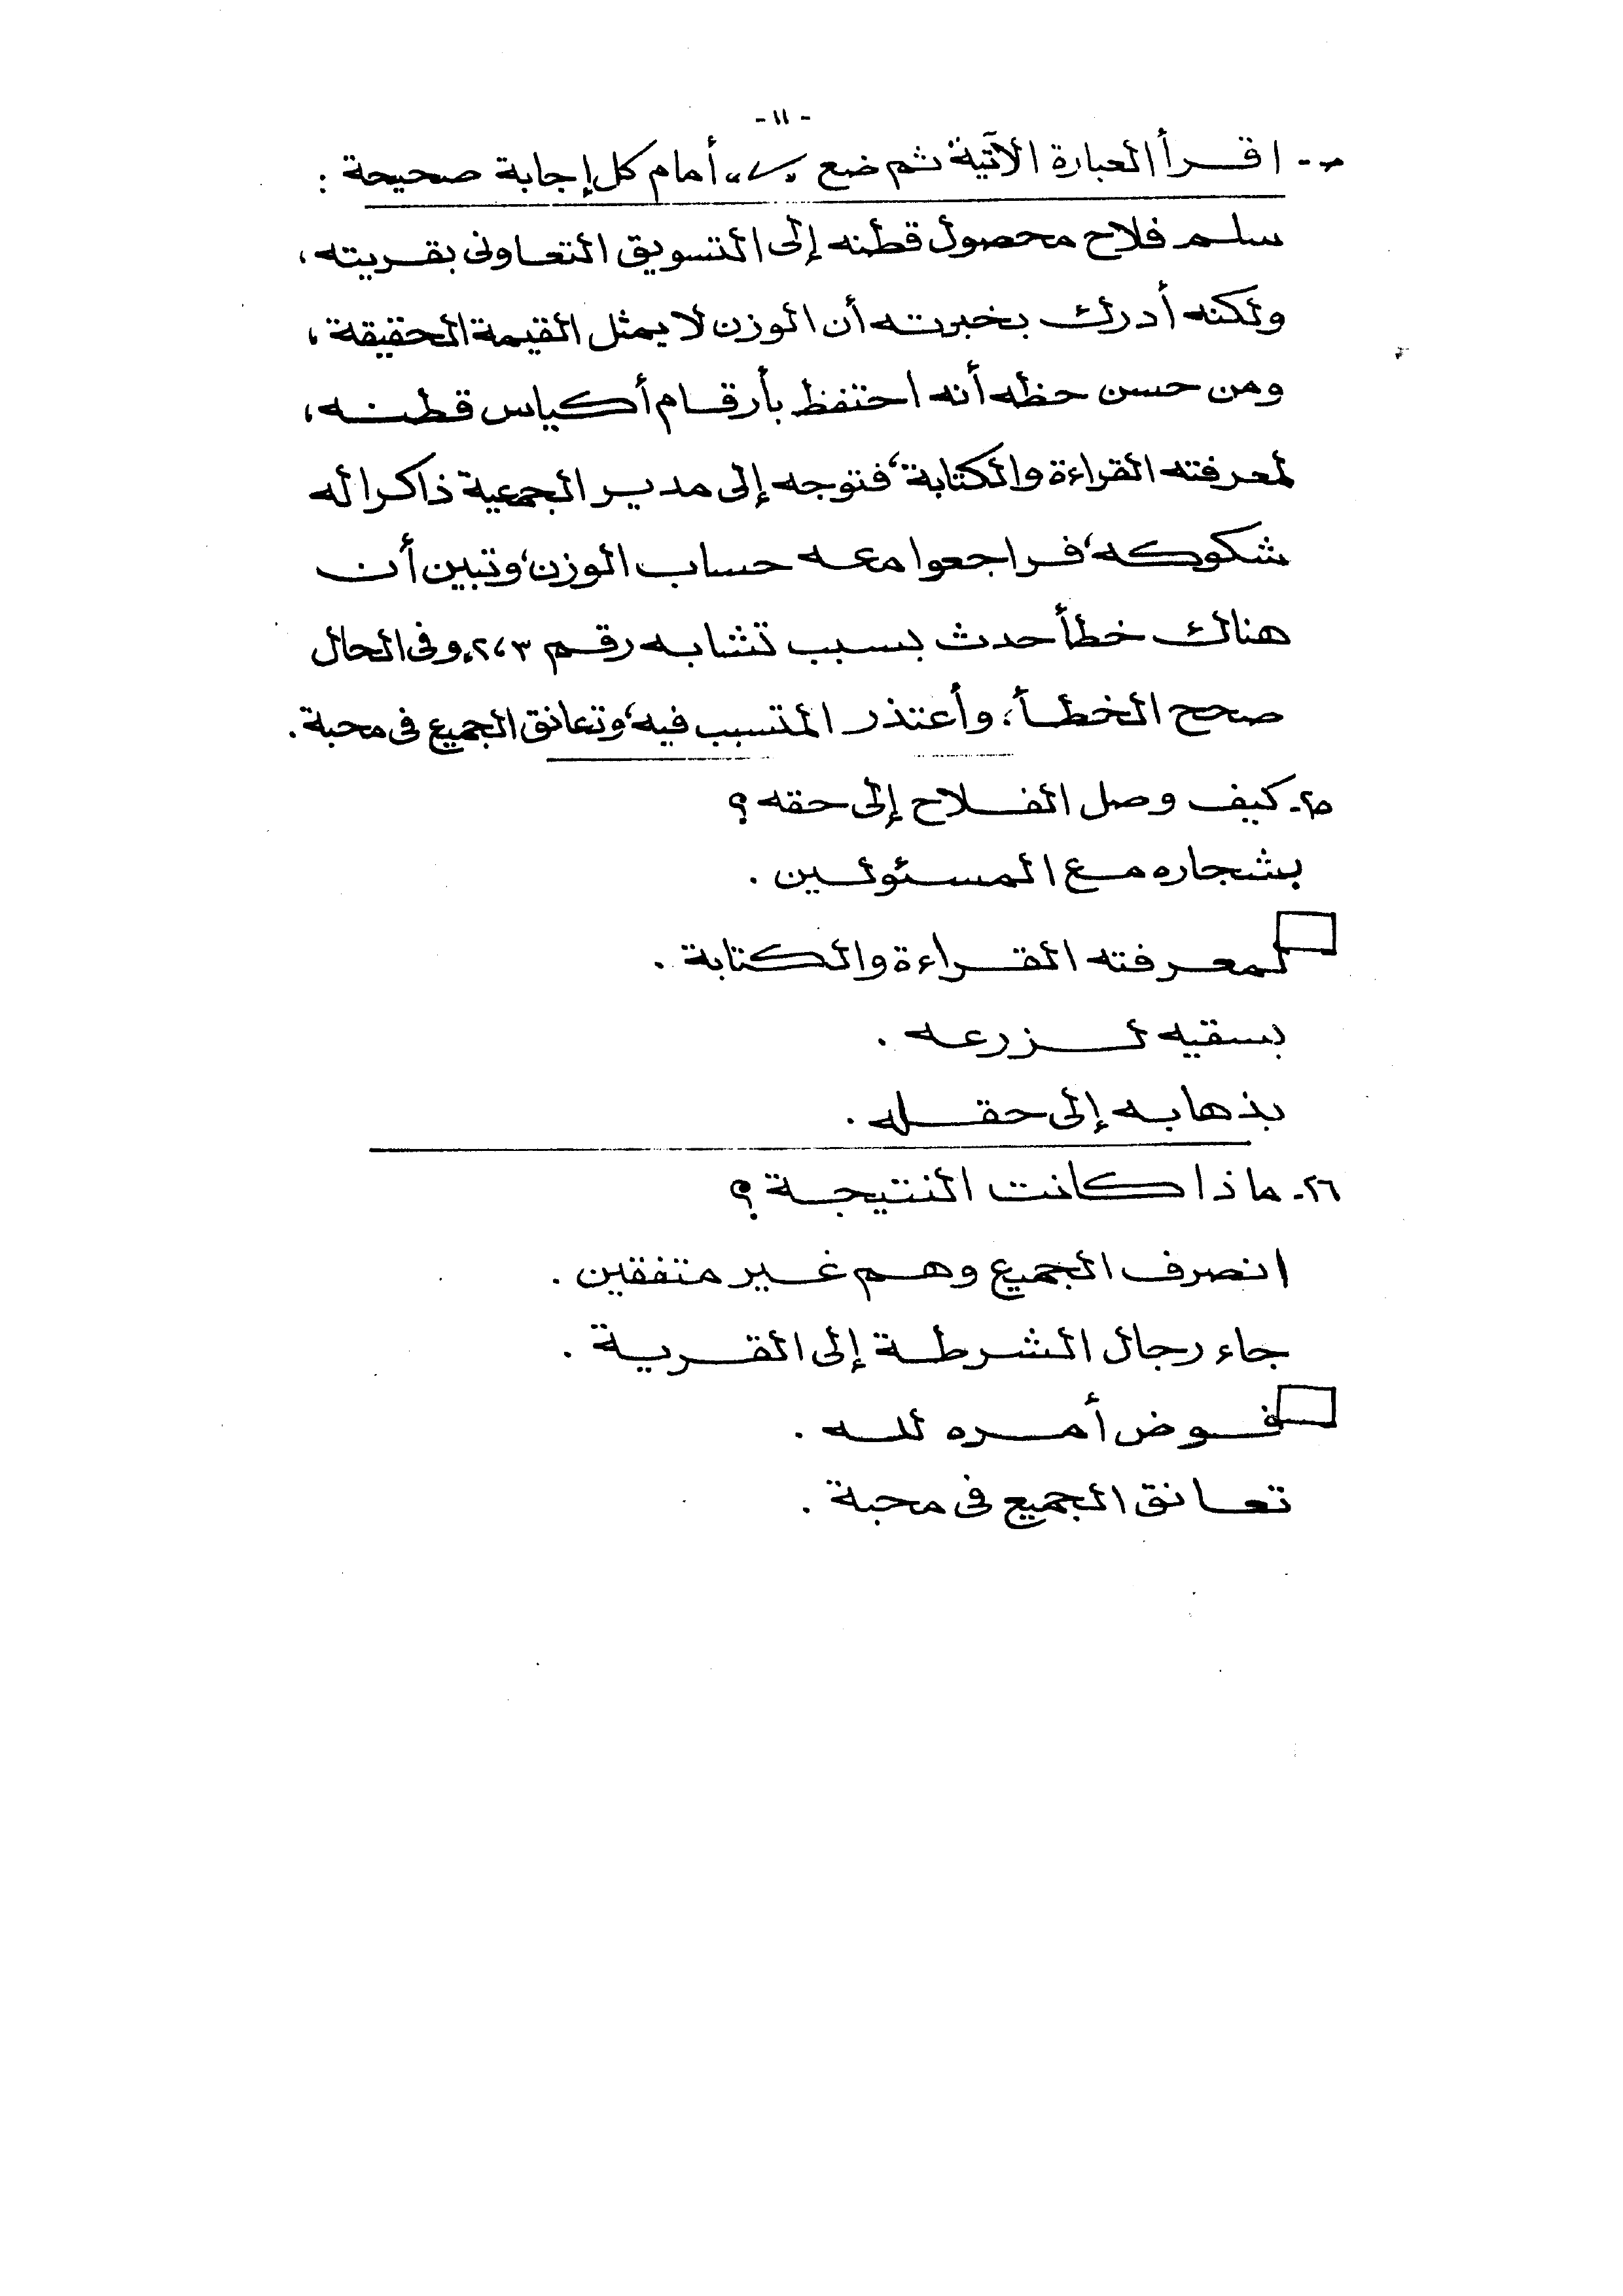 - ١١ -
-- اقرأ العبارة الآتية ثم ضع "✓" أمام كل إجابة صحيحة :
سلم فلاح محصول قطنه إلى التسويق التعاونى بقريته،
ولكنه أدرك بخبرته أن الوزن لا يمثل القيمة الحقيقة،
ومن حسن حظه أنه احتفظ بأرقام أكياس قطنه،
لمعرفته القراءة والكتابة، فتوجه إلى مدير الجمعية ذاكرا له
شكوكه، فراجعوا معه حساب الوزن، وتبين أن
هناك خطأ حدث بسبب تشابه رقم ٢،٣. وفى الحال
صحح الخطأ، وأعتذر المتسبب فيه، وتعانق الجميع فى محبة.
٢٥- كيف وصل الفلاح إلى حقه؟
بشجاره مع المسئولين.
لمعرفته القراءة والكتابة.
بسقيه لزرعه.
بذهابه إلى حقله.
٢٦- ماذا كانت النتيجة؟
انصرف الجميع وهم غير متفقين.
جاء رجال الشرطة إلى القرية.
فوض أمره لله.
تعانق الجميع فى محبة.